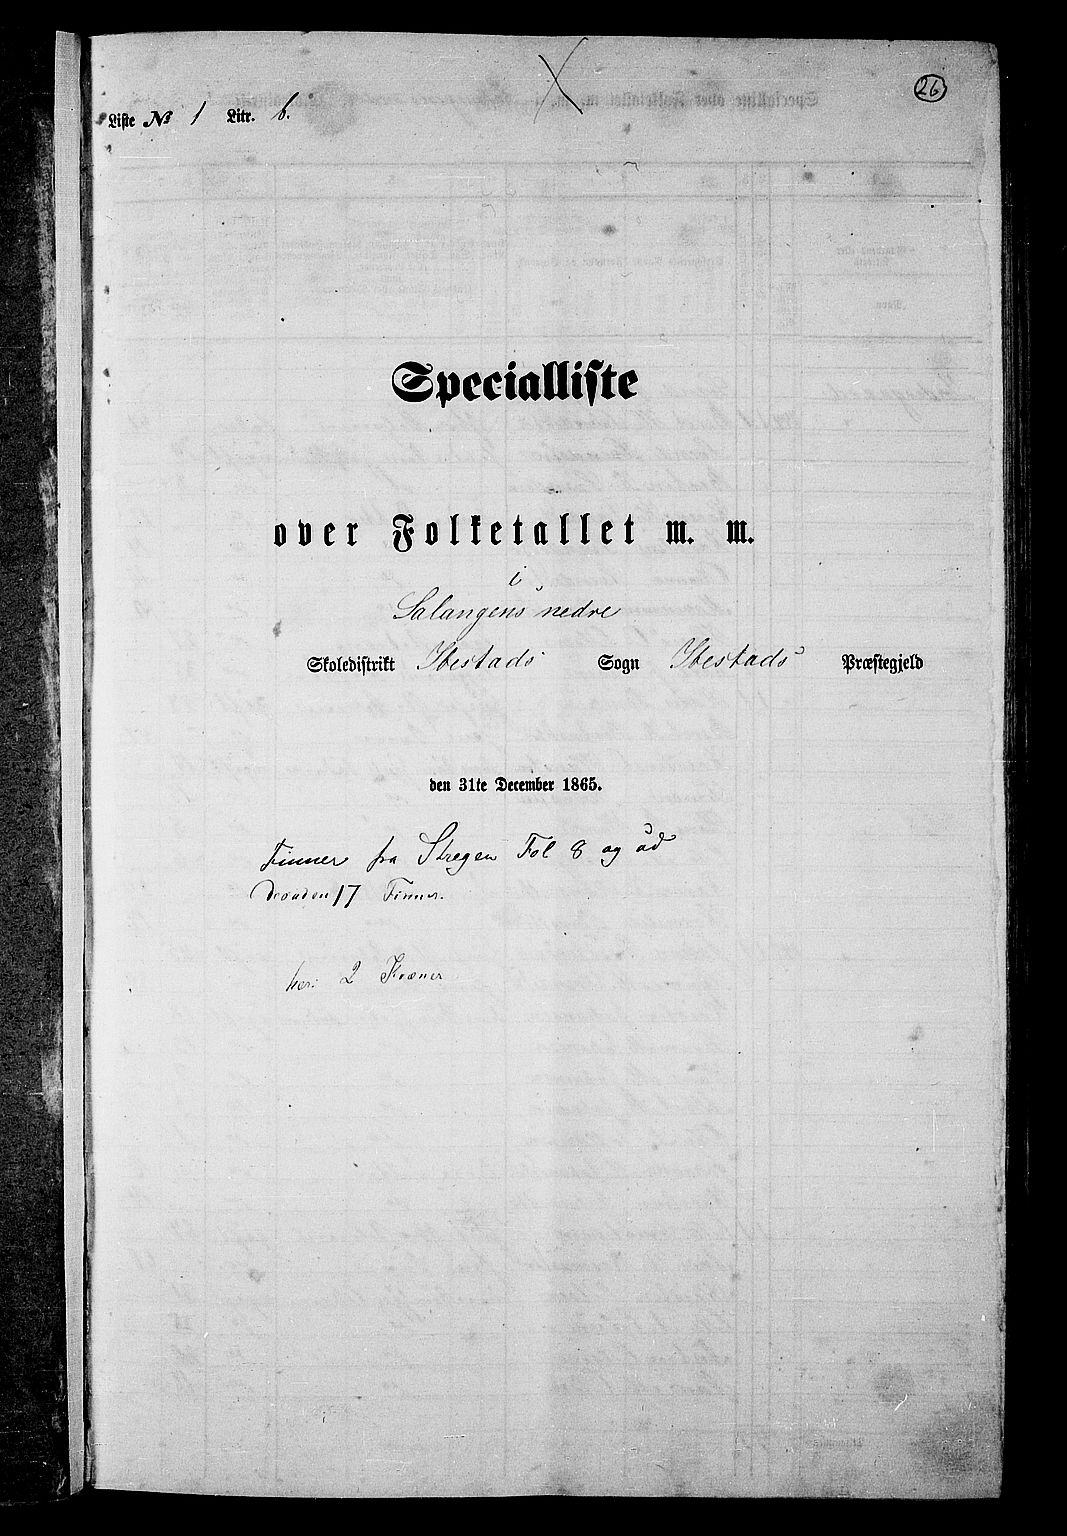 26
Liste № 1 Litr. b.
Specialliste
over Folketallet m. m.
i
Salangens nedre
Skoledistrikt Ibestads Sogn Ibestads Præstegjeld
den 31te December 1865.
Finner fra Stregen Fol 8 og ud
Desuden 17 Finner.
her: 2 Kvæner